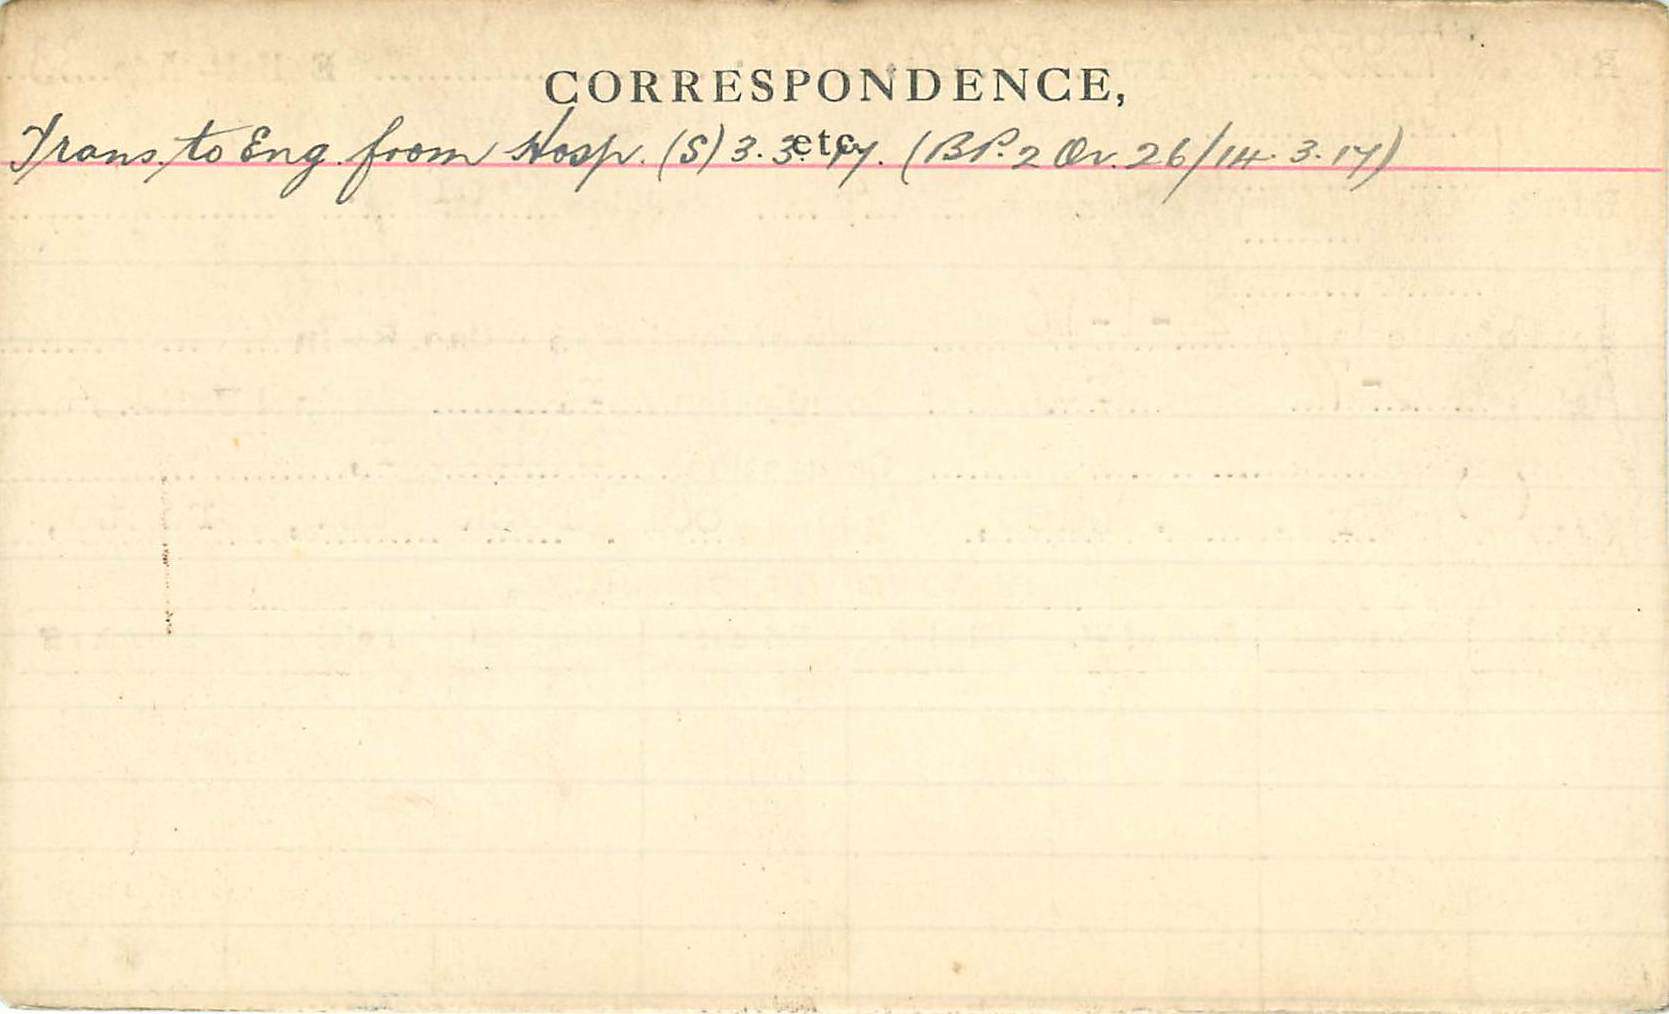 CORRESPONDENCE,
etc.
Trans. to Eng. from Hosp. (S) 3.3.17. (BP. 2 Or. 26/14.3.17)